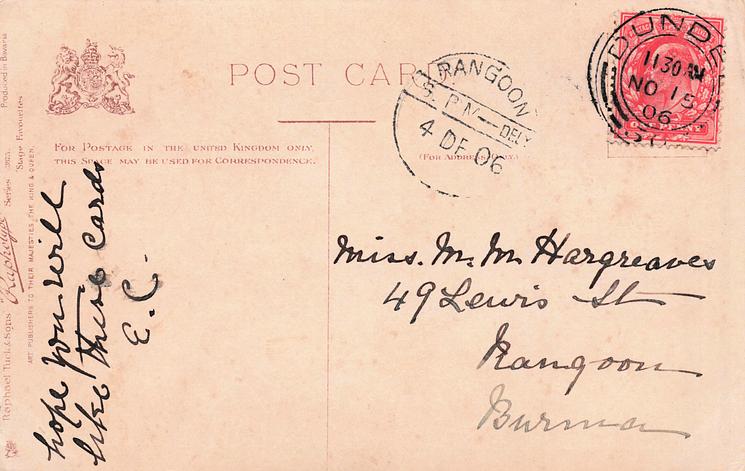 POST CARD
FOR POSTAGE IN THE UNITED KINGDOM ONLY,
THIS SPACE MAY BE USED FOR CORRESPONDENCE.
(FOR ADDRESS ONLY.)
RANGOON
5. P.M—DELY
4 DE 06
DUNDEE
1130AM
NO 15
06
hope you will
like these cards
E. C.
Miss. M. M. Hargreaves
49 Lewis St
Rangoon
Burma
Raphael Tuck & Sons "Rapholette" Series
Stage Favourites
Produced in Bavaria
ART PUBLISHERS TO THEIR MAJESTIES THE KING & QUEEN.